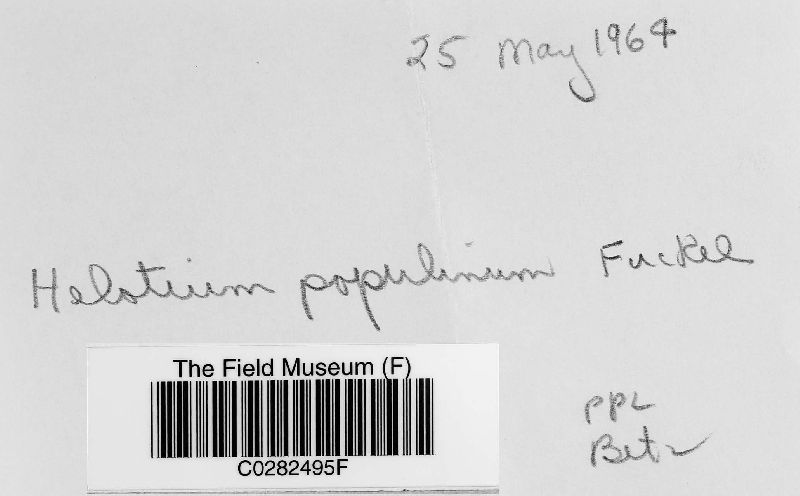 25 May 1964
Helotium populinum Fuckel
The Field Museum (F)
C0282495F
ppl
Betz